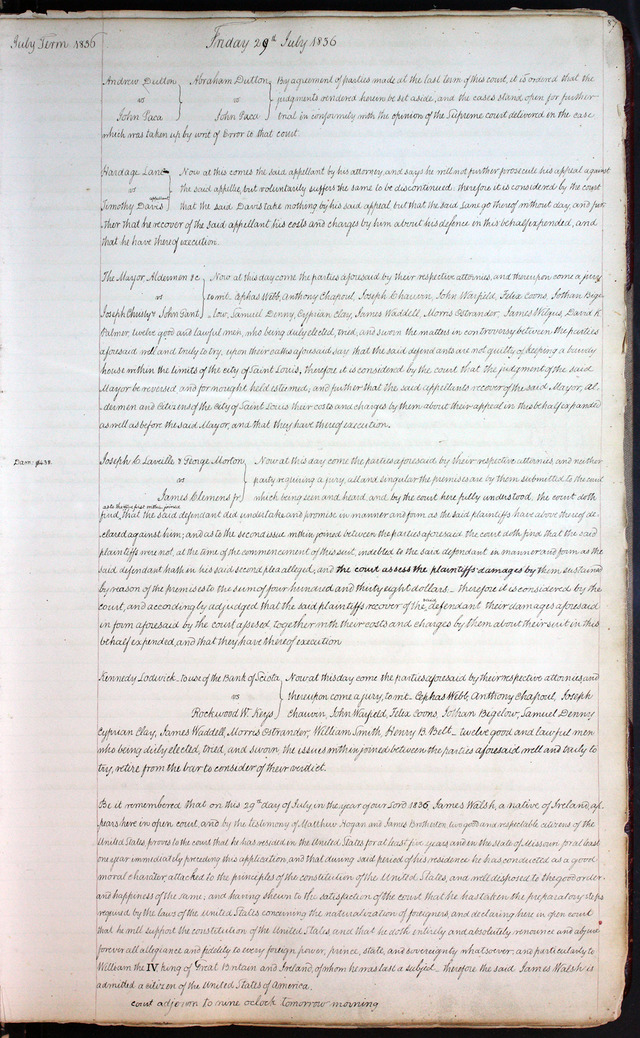 87
July Term 1836
Friday 29th July 1836
Andrew Dutton
vs
John Paca
Abraham Dutton
vs
John Paca
By agreement of parties made at the last term of this court, it is ordered that the
judgments rendered herein be set aside, and the cases stand open for further
trial in conformity with the opinion of the Supreme court delivered in the case
which was taken up by writ of Error to that court.
Hardage Lane
vs
Timothy Davis appellant
Now at this comes the said appellant by his attorney, and says he will not further prosecute his appeal against
the said appellee, but voluntarily suffers the same to be discontinued. therefore it is considered by the court
that the said Davis take nothing by his said appeal but that the said Lane go thereof without day, and fur-
ther that he recover of the said appellant his costs and charges by him about his defence in this behalf expended, and
that he have thereof execution.
The Mayor, Aldermen &c
vs
Joseph Chusty & John Gant
Now at this day come the parties aforesaid by their respective attornies, and thereupon come a jury
to wit. Cephas Webb, Anthony Chapoul, Joseph Chauvin, John Warfield, Felix Coons, Jothan Bige-
low, Samuel Denny, Cyprian Clay, James Waddell, Morris Ostrander, James Wilgus, David K
Palmer, twelve good and lawful men, who being duly elected, tried, and sworn the matters in controversy between the parties
aforesaid well and truly to try, upon their oaths aforesaid say that the said defendants are not guilty of keeping a bawdy
house within the limits of the city of Saint Louis, therefore it is considered by the court that the judgment of the said
Mayor be reversed and for nought held esteemed; and further that the said appellants recover of the said Mayor, Al-
dermen and Citizens of the City of Saint Louis their costs and charges by them about their appeal in this behalf expended
as well as before the said Mayor, and that they have thereof execution.
Dam: $438.
Joseph C Laville & George Morton
vs
James Clemens jr
Now at this day come the parties aforesaid by their respective attornies, and neither
party requiring a jury, all and singular the premises are by them submitted to the court
which being seen and heard, and by the court here fully understood, the court doth
as to the first within joined
find, that the said defendant did undertake and promise in manner and form as the said plaintiffs have above thereof de-
clared against him; and as to the second issue within joined between the parties aforesaid the court doth find that the said
plaintiffs were not, at the time of the commencement of this suit, indebted to the said defendant in manner and form as the
said defendant hath in his said second plea alleged; and the court assess the plaintiffs damages by them sustained
by reason of the premises to the sum of four hundred and thirty eight dollars. Therefore it is considered by the
court, and accordingly adjudged that the said plaintiffs recover of the said defendant their damages aforesaid
in form aforesaid by the court assessed together with their costs and charges by them about their suit in this
behalf expended, and that they have thereof execution
Kennedy Lodwick to use of the Bank of Sciota
vs
Rockwood W. Keys
Now at this day come the parties aforesaid by their respective attornies and
thereupon come a jury, to wit. Cephas Webb, Anthony Chapoul, Joseph
Chauvin, John Warfield, Felix Coons, Jothan Bigelow, Samuel Denny
Cyprian Clay, James Waddell, Morris Ostrander, William Smith, Henry B Belt twelve good and lawful men
who being duly elected, tried, and sworn, the issues within joined between the parties aforesaid well and truly to
try, retire from the bar to consider of their verdict.
Be it remembered that on this 29th day of July in the year of our Lord 1836, James Walsh, a native of Ireland, ap-
pears here in open court, and by the testimony of Matthew Hogan and James Brotherton, two good and respectable citizens of the
United States, proves to the court that he has resided in the United States for at least five years and in the state of Missouri for at least
one year immediately preceding this application, and that during said period of his residence he has conducted as a good
moral charater, attached to the principles of the constitution of the United States, and well disposed to the good order
and happiness of the same; and having shewn to the satisfaction of the court that he has taken the preparatory steps
required by the laws of the United States concerning the naturalization of foreigners, and declaring here in open court
that he will support the constitution of the United States, and that he doth entirely and absolutely renounce and abjure
forever all allegiance and fidelity to every foreign power, prince, state, and sovereignty whatsoever, and particularly to
William the IV, king of Great Britain and Ireland, of whom he was last a subject therefore the said James Walsh is
admitted a citizen of the United States of America.
court adjourn to nine oclock tomorrow morning